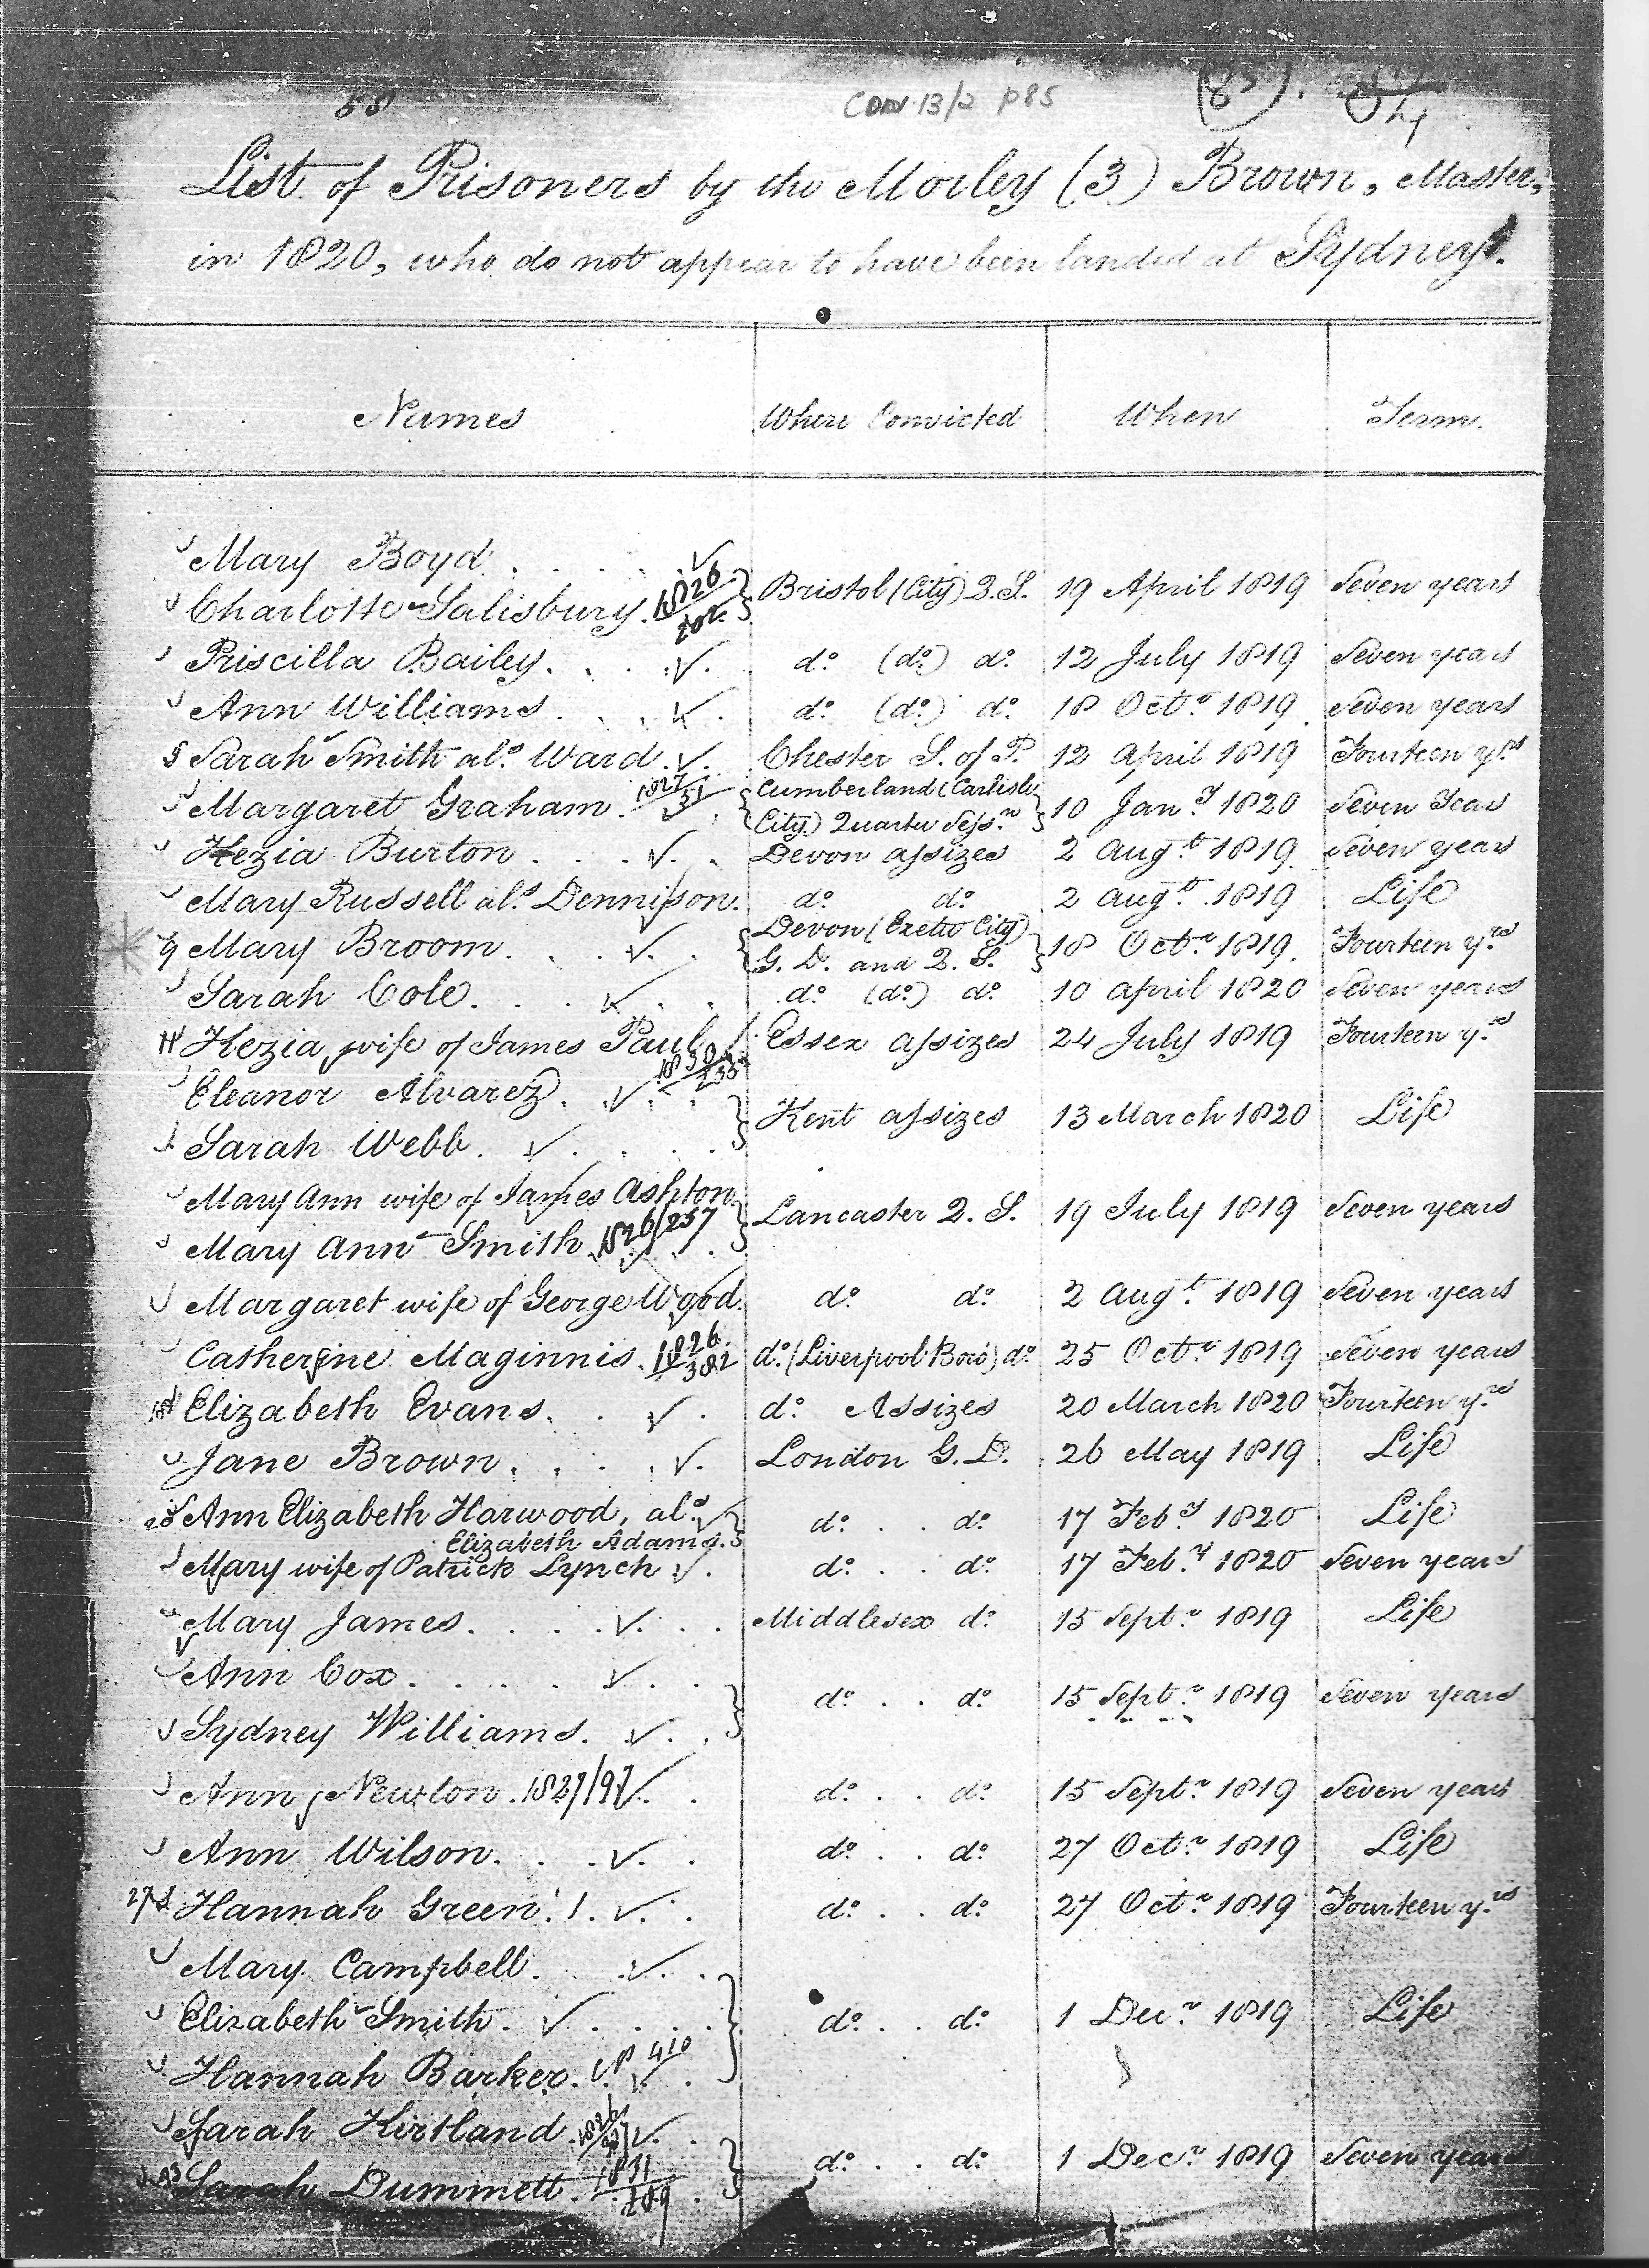 CON 13/2 p85
(85).
List of Prisoners by the Morley (3) Brown, Master,
in 1820, who do not appear to have been landed at Sydney.
Names Where Convicted When Term.
Mary Boyd
Charlotte Salisbury. 1826 Bristol (City) Q.S. 19 April 1819 Seven years
Priscilla Bailey. do. (do.) do. 12 July 1819 Seven years
Ann Williams. do. (do.) do. 18 Octr. 1819 Seven years
5 Sarah Smith als. Ward. Chester S. of P. 12 April 1819 Fourteen yrs
Margaret Graham. 1827/31 Cumberland (Carlisle City) Quarter Sessn. 10 Jany. 1820 Seven Years
Kezia Burton. Devon assizes 2 Augt. 1819 Seven years
Mary Russell als. Dennison. do. do. 2 Augt. 1819 Life
9 Mary Broom. Devon (Exeter City) G. D. and Q. S. 18 Octr. 1819. Fourteen yrs
Sarah Cole. do. (do.) do. 10 April 1820 Seven years
11 Kezia wife of James Paul Essex assizes 24 July 1819 Fourteen yrs
Eleanor Alvarez. 1830
Sarah Webb. Kent assizes 13 March 1820 Life
Mary Ann wife of James Ashton
Mary Ann Smith 1826/257 Lancaster Q. S. 19 July 1819 Seven years
Margaret wife of George Wood. do. do. 2 Augt. 1819 Seven years
Catherine Maginnis. 1826/382 do. (Liverpool Boro) do. 25 Octr. 1819 Seven years
18 Elizabeth Evans. do. Assizes 20 March 1820 Fourteen yrs
Jane Brown. London G. D. 26 May 1819 Life
20 Ann Elizabeth Harwood, als. do. do. 17 Feby. 1820 Life
Elizabeth Adams.
Mary wife of Patrick Lynch do. do. 17 Feby. 1820 Seven years
Mary James. Middlesex do. 15 Septr. 1819 Life
Ann Cox.
Sydney Williams. do. do. 15 Septr. 1819 Seven years
Ann Newton. 1827/97 do. do. 15 Septr. 1819 Seven years
Ann Wilson. do. do. 27 Octr. 1819 Life
27 Hannah Green. do. do. 27 Octr. 1819 Fourteen yrs
Mary Campbell.
Elizabeth Smith. do. do. 1 Decr. 1819 Life
Hannah Barker. 410
Sarah Kirtland. 1826
Sarah Dummett. 1831/109 do. do. 1 Decr. 1819 Seven years